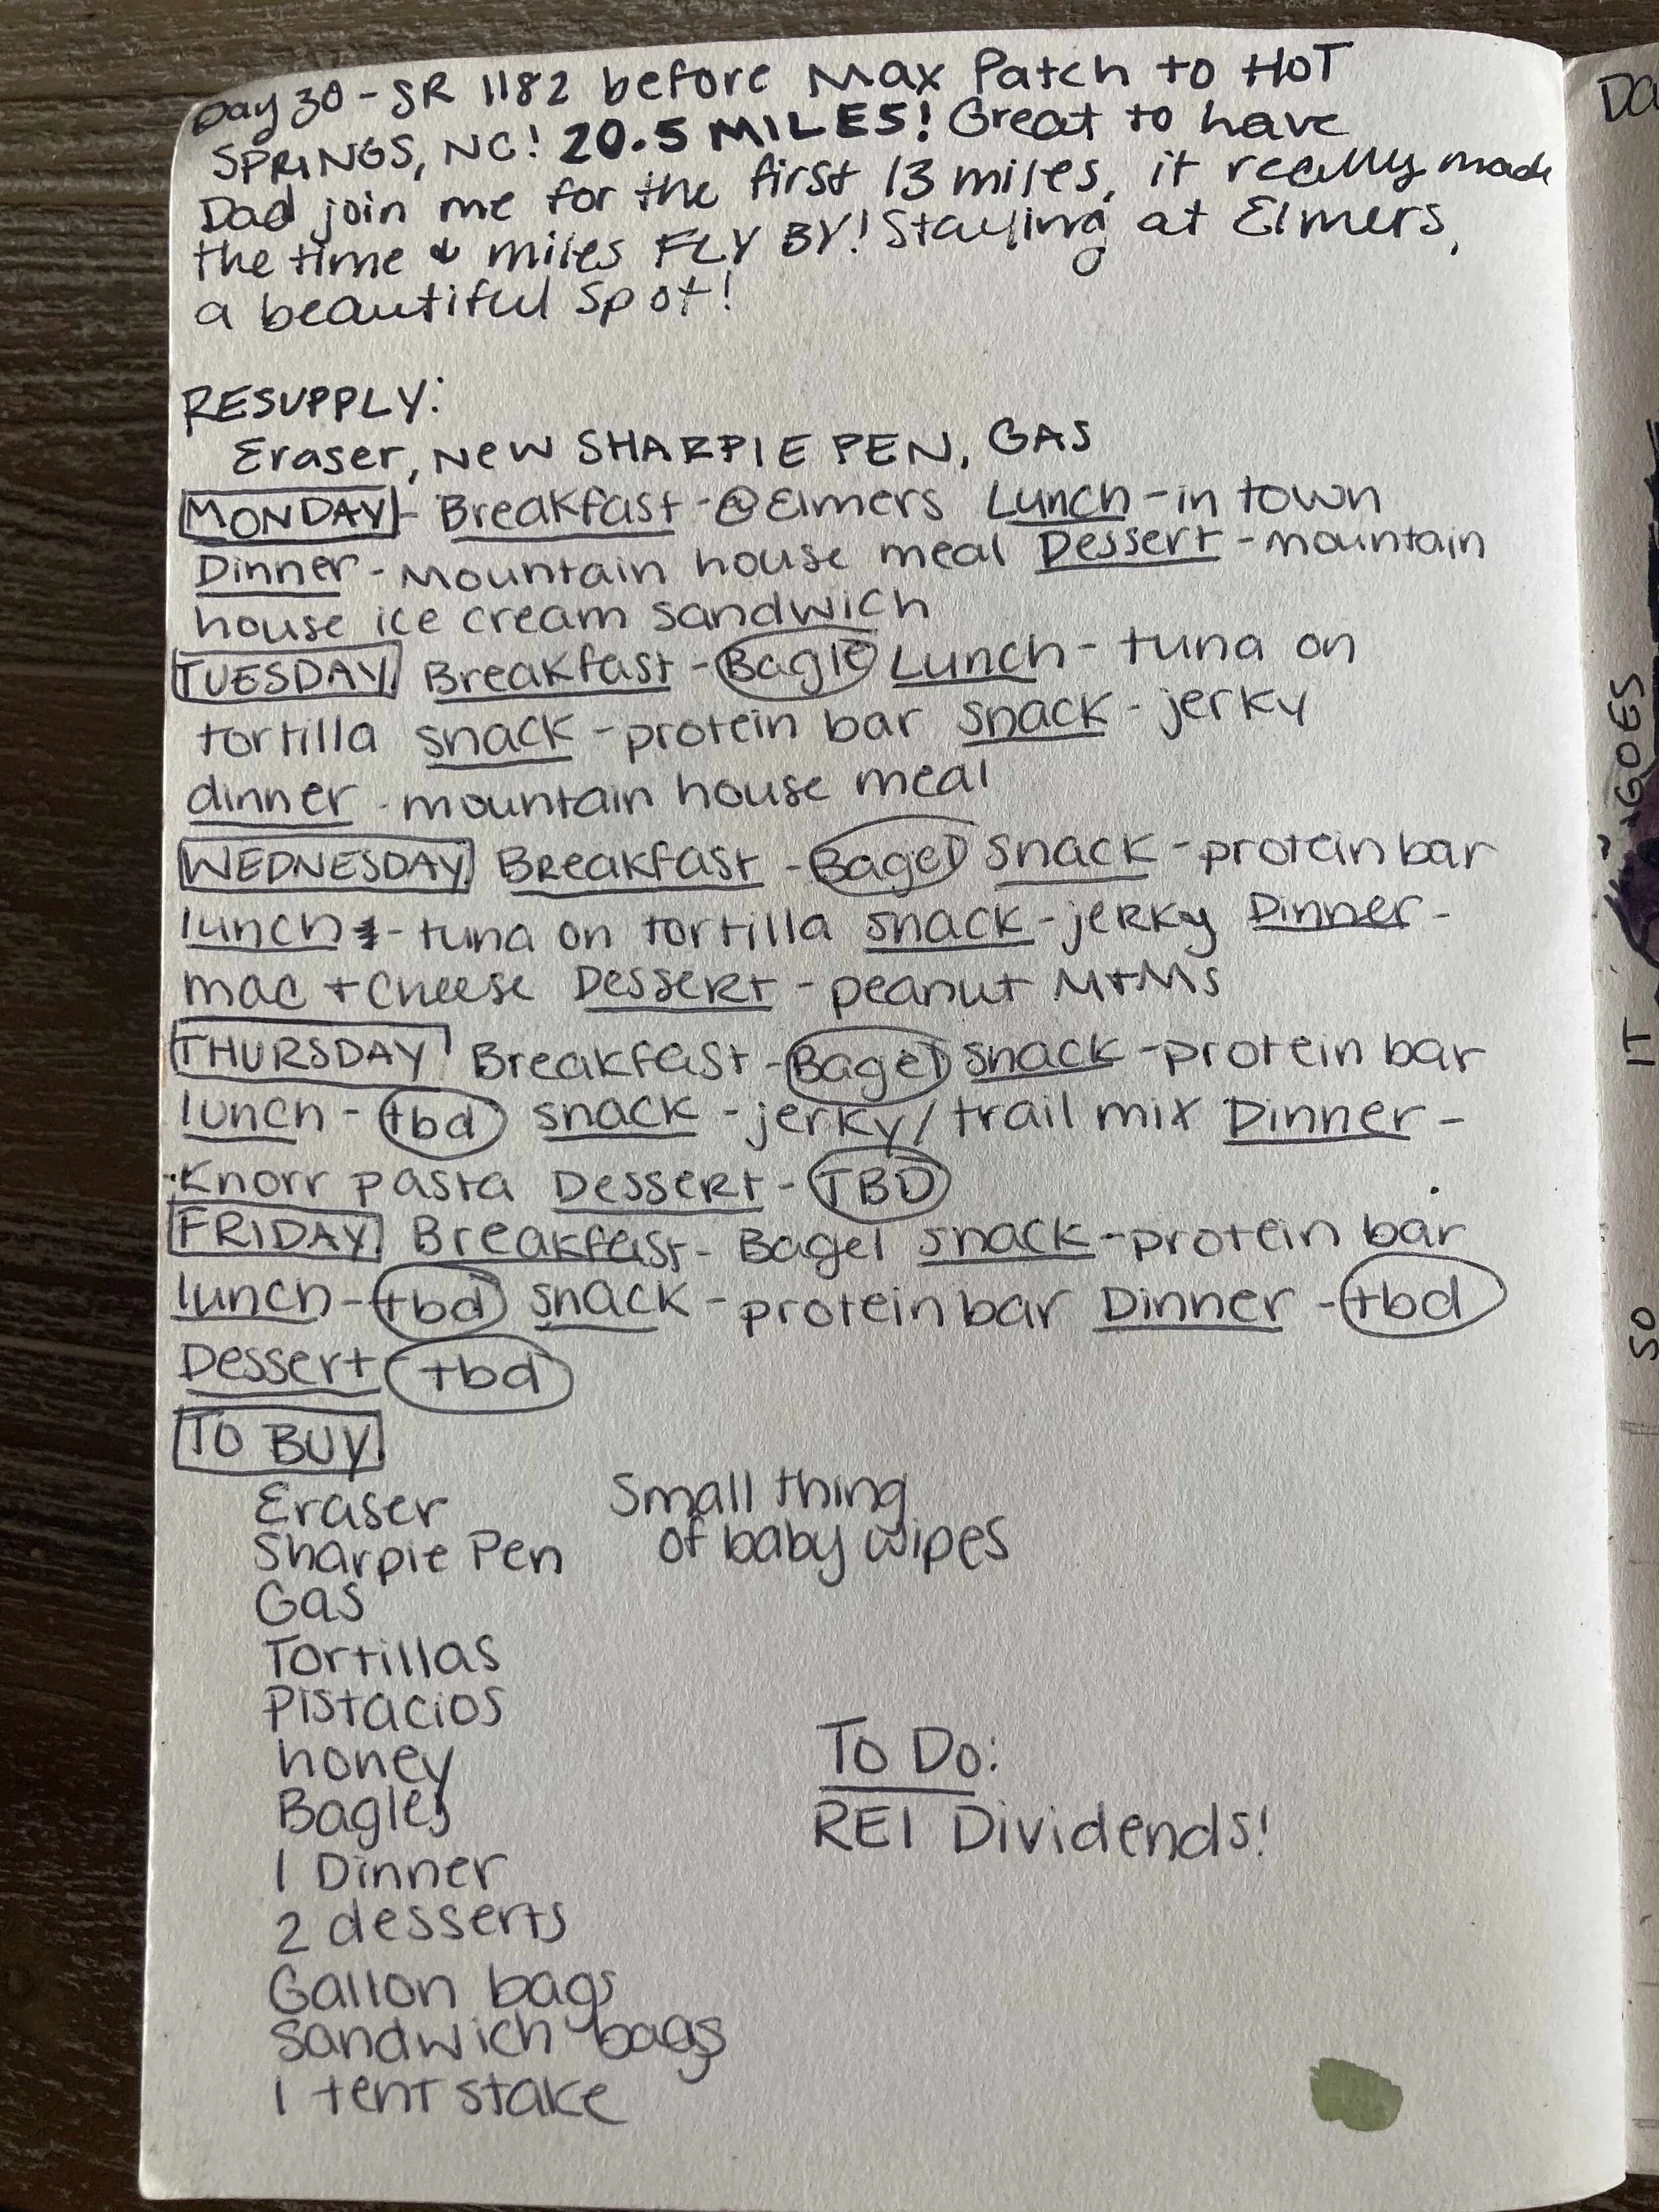 Day 30 - SR 1182 before Max Patch to HOT
SPRINGS, NC! 20.5 MILES! Great to have
Dad join me for the first 13 miles, it really made
the time & miles FLY BY! Staying at Elmers,
a beautiful spot!
RESUPPLY:
Eraser, NEW SHARPIE PEN, GAS
MONDAY - Breakfast - @Elmers Lunch - in town
Dinner - Mountain house meal Dessert - mountain
house ice cream sandwich
TUESDAY Breakfast - Bagle Lunch - tuna on
tortilla snack - protein bar snack - jerky
dinner - mountain house meal
WEDNESDAY Breakfast - Bagel snack - protein bar
lunch - tuna on tortilla snack - jerky Dinner -
mac + cheese Dessert - peanut M+Ms
THURSDAY Breakfast - Bagel snack - protein bar
lunch - tbd snack - jerky/trail mix Dinner -
Knorr pasta Dessert - TBD
FRIDAY Breakfast - Bagel snack - protein bar
lunch - tbd snack - protein bar Dinner - tbd
Dessert tbd
TO BUY
Eraser
Sharpie Pen
Gas
Tortillas
Pistacios
honey
Bagles
1 Dinner
2 desserts
Gallon bags
Sandwich bags
1 tent stake
Small thing
of baby wipes
To Do:
REI Dividends!
DA
GOES
IT
SO